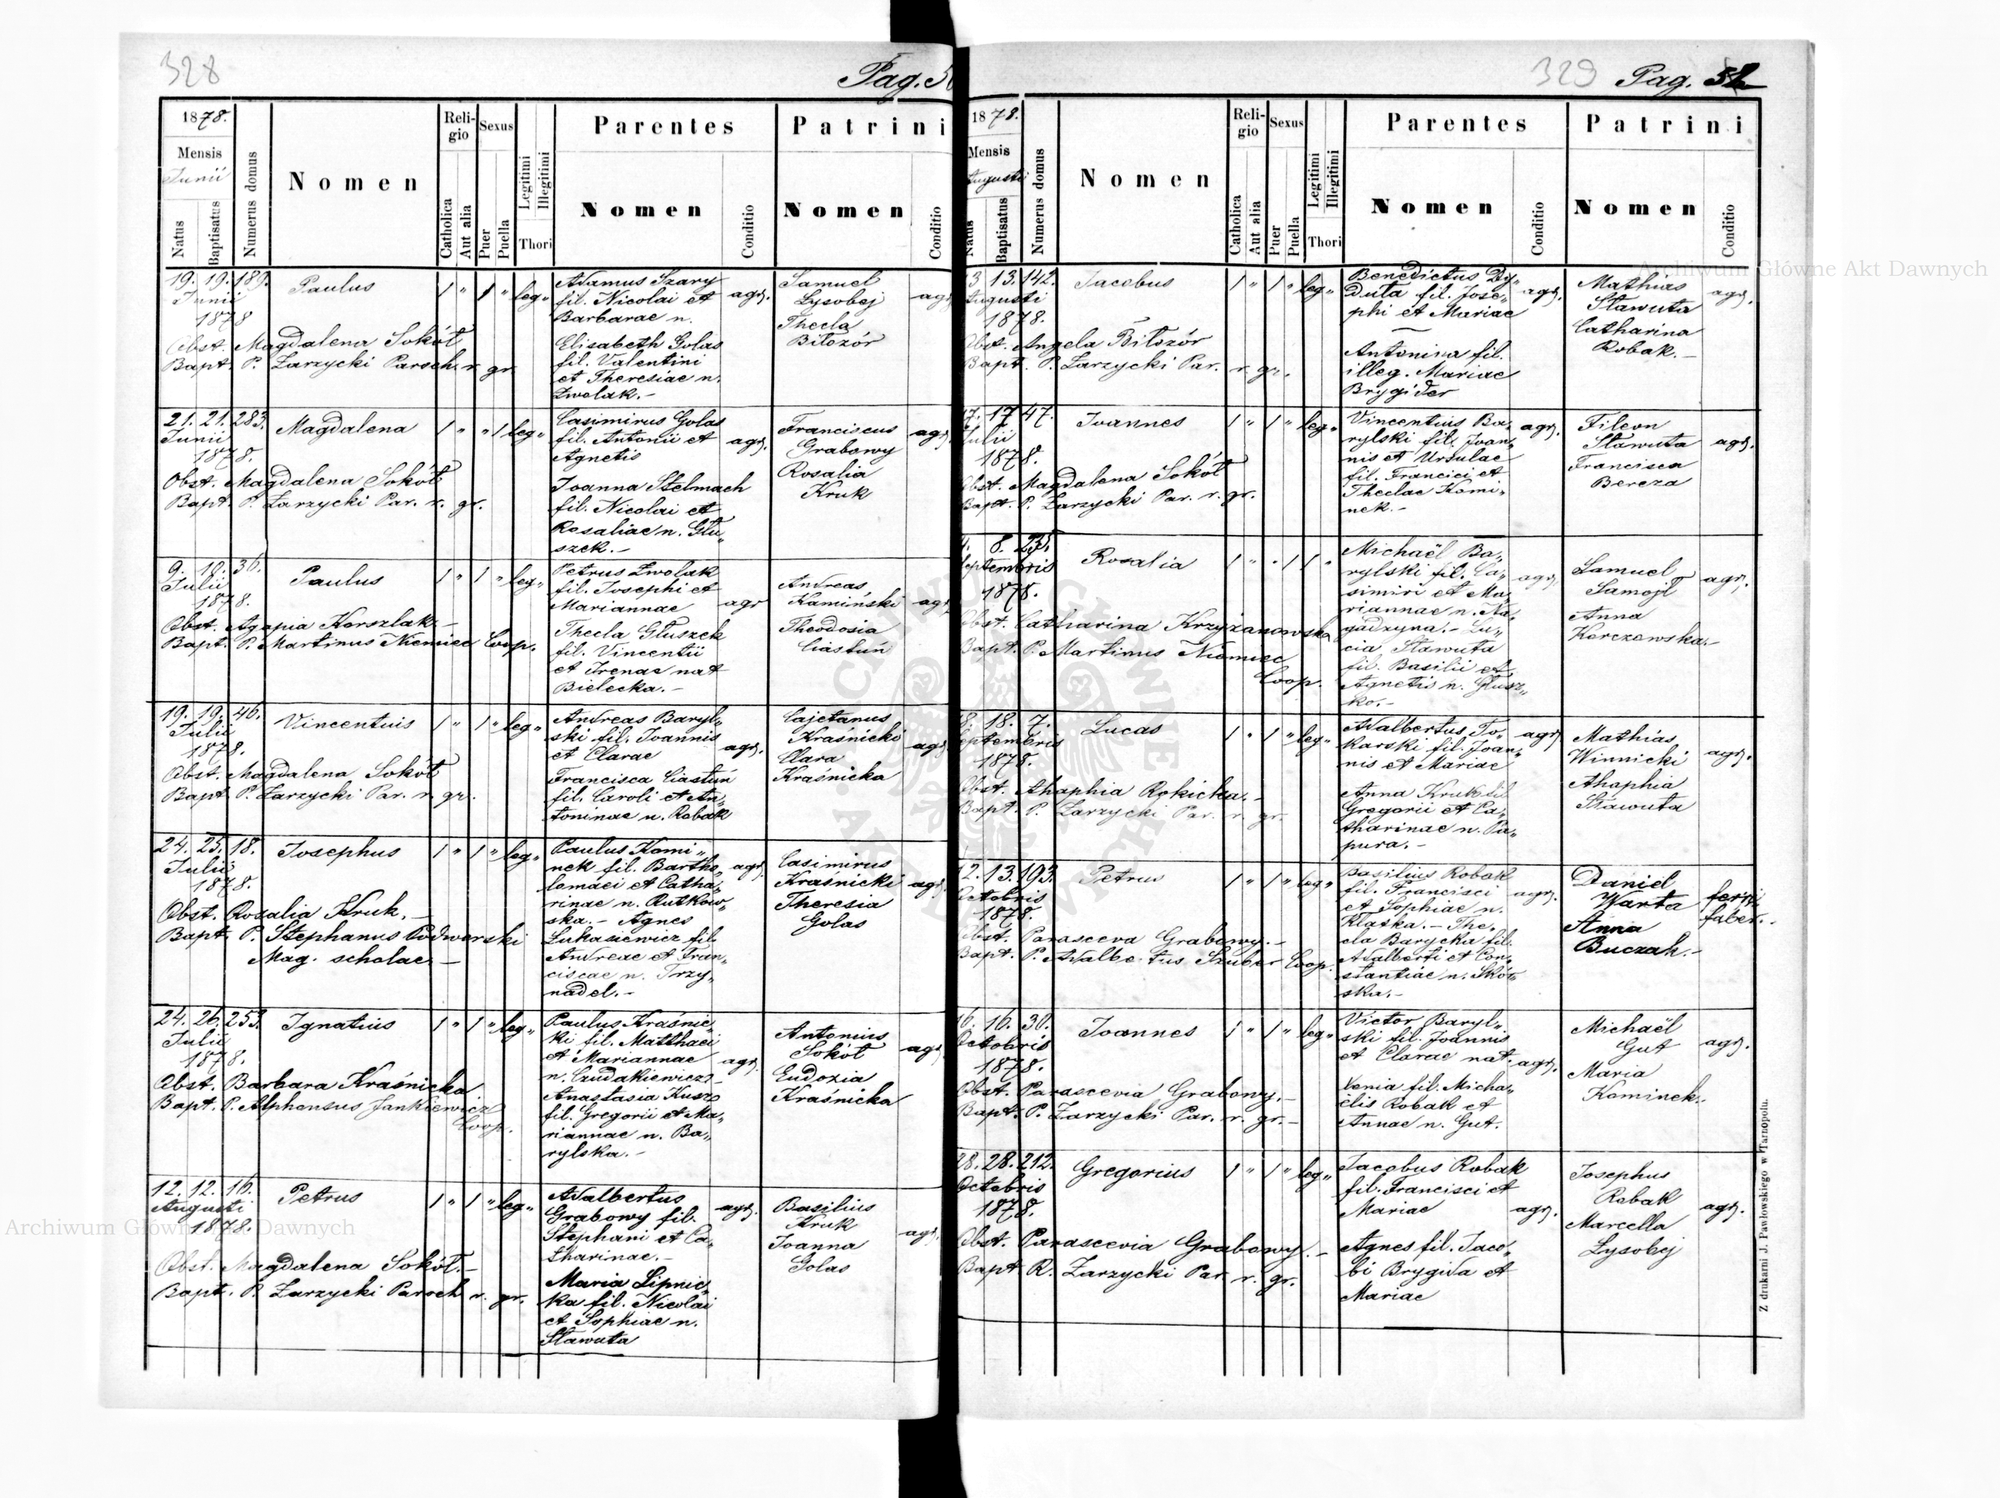 328
Pag. 5
1878.
Mensis
Junii
Natus
Baptisatus
Numerus domus
Nomen
Religio
Catholica
Aut alia
Sexus
Puer
Puella
Legitimi
Illegitimi
Thori
Parentes
Nomen
Conditio
Patrini
Nomen
Conditio
19. 19. 189.
Junii
1878
Paulus
1 " 1 " leg"
Obst. Magdalena Sokół
Bapt. P. Zarzycki Paroch. r. gr.
Adamus Szary
fil. Nicolai et
Barbarae n.
Elisabeth Golas
fil. Valentini
et Theresiae n.
Zwolak.-
agr.
Samuel
Łysobej
Thecla
Biłozór
agr
21. 21. 283.
Junii
1878.
Magdalena
1 " " 1 leg"
Obst. Magdalena Sokół
Bapt. P. Zarzycki Par. r. gr.
Casimirus Golas
fil. Antonii et
Agnetis
Joanna Stelmach
fil. Nicolai et
Rosaliae n. Głu„
szek.-
agr.
Franciscus
Grabowy
Rosalia
Kruk
agr
9. 10. 36.
Julii
1878.
Paulus
1 " 1 " leg"
Obst. Agapia Korszlak.-
Bapt. P. Martinus Niemiec Coop.
Petrus Zwolak
fil. Josephi et
Mariannae
Thecla Głuszek
fil. Vincentii
et Irenae nat
Bielecka.-
agr
Andreas
Kamiński
Theodosia
Ciastuń
agr
19. 19. 46.
Julii
1878.
Vincentius
1 " 1 " leg"
Obst. Magdalena Sokół
Bapt. P. Zarzycki Par. r. gr.
Andreas Baryl„
ski fil. Joannis
et Clarae
Francisca Ciastuń
fil. Caroli et An„
toninae n. Robak
agr.
Cajetanus
Kraśnicki
Clara
Kraśnicka
agr
24. 25. 18.
Julii
1878.
Josephus
1 " 1 " leg"
Obst. Rosalia Kruk.-
Bapt. P. Stephanus Podworski
Mag. scholae-
Paulus Komi„
nek fil. Bartho„
lomaei et Catha„
rinae n. Rutkow„
ska.- Agnes
Łukasiewicz fil.
Andreae et Fran„
ciscae n. Trzy„
nadel.-
agr.
Casimirus
Kraśnicki
Theresia
Golas
agr
24. 26. 253.
Julii
1878.
Ignatius
1 " 1 " leg"
Obst. Barbara Kraśnicka
Bapt. P. Alphonsus Jankiewicz
Coop.
Paulus Kraśnic„
ki fil. Matthaei
et Mariannae
n. Czudakiewicz-
Anastasia Kusz
fil. Gregorii et Ma„
riannae n. Ba„
rylska.-
agr.
Antonius
Sokół
Eudoxia
Kraśnicka
agr
12. 12. 16.
Augusti
1878.
Petrus
1 " 1 " leg"
Obst. Magdalena Sokół.-
Bapt. P. Zarzycki Paroch r. gr.
Adalbertus
Grabowy fil.
Stephani et Ca„
tharinae.-
Maria Lipnic„
ka fil. Nicolai
et Sophiae n.
Sławuta
agr.
Basilius
Kruk
Joanna
Golas
agr.
329
Pag. 52
1878.
Mensis
Augusti
Natus
Baptisatus
Numerus domus
Nomen
Religio
Catholica
Aut alia
Sexus
Puer
Puella
Legitimi
Illegitimi
Thori
Parentes
Nomen
Conditio
Patrini
Nomen
Conditio
3 13. 142.
Augusti
1878.
Jacobus
1 " 1 " leg"
Obst. Angela Biłozór
Bapt. P. Zarzycki Par. r. gr.
Benedictus Dy„
duta fil. Jose„
phi et Mariae
Antonina fil.
illeg. Mariae
Brygider
agr.
Mathias
Sławuta
Catharina
Robak.-
agr.
17. 17 47.
Julii
1878.
Joannes
1 " 1 " leg"
Obst. Magdalena Sokół
Bapt. P. Zarzycki Par. r. gr.
Vincentius Ba„
rylski fil. Joan„
nis et Ursulae
fil. Francici et
Theclae Komi„
nek.-
agr.
Fileon
Sławuta
Francisca
Bereza
agr.
8. 235.
Septembris
1878.
Rosalia
1 " " 1 1 "
Obst. Catharina Krzyżanowska
Bapt. P. Martinus Niemiec
Coop.
Michaël Ba„
rylski fil. Ca„
simiri et Ma„
riannae n. Na„
gadzyna.- Lu„
cia Sławuta
fil. Basilii et
Agnetis n. Głusz„
ko.-
agr.
Samuel
Samojł
Anna
Korczewska.-
agr.
8. 18. 7.
Septembris
1878.
Lucas
1 " 1 " leg"
Obst. Ahaphia Rokicka.-
Bapt. P. Zarzycki Par. r. gr.
Adalbertus To„
karski fil. Joan„
nis et Mariae
Anna Kruk fil
Gregorii et Ca„
tharinae n. Pa„
pura.-
agr
Mathias
Winnicki
Ahaphia
Sławuta
agr.
2. 13. 193.
Octobris
1878.
Petrus
1 " 1 " leg"
Obst. Parasceva Grabowy.-
Bapt. P. Adalbertus Szuber Coop.
Basilius Robak
fil. Francisci
et Sophiae n.
Klaska.- The„
cla Barycka fil.
Adalberti et Con„
stantiae n. Skór„
ska.-
agr.
Daniel
Warta
Anna
Buczak.-
ferri
faber.
16. 16. 30.
Octobris
1878.
Joannes
1 " 1 " leg"
Obst. Parascevia Grabowy.-
Bapt. P. Zarzycki Par. r. gr.-
Victor Baryl„
ski fil. Joannis
et Clarae nat.
Xenia fil. Micha„
ëlis Robak et
Annae n. Gut.
agr.
Michaël
Gut
Maria
Kominek.
agr.
28. 28. 212.
Octobris
1878.
Gregorius
1 " 1 " leg"
Obst. Parascevia Grabowy.-
Bapt R. Zarzycki Par. r. gr.
Jacobus Robak
fil. Francisci et
Mariae
Agnes fil. Jaco„
bi Brygida et
Mariae
agr.
Josephus
Robak
Marcella
Łysobej
agr.
Z drukarni J. Pawłowskiego w Tarnopolu.
Archiwum Główne Akt Dawnych
Archiwum Główne Akt Dawnych